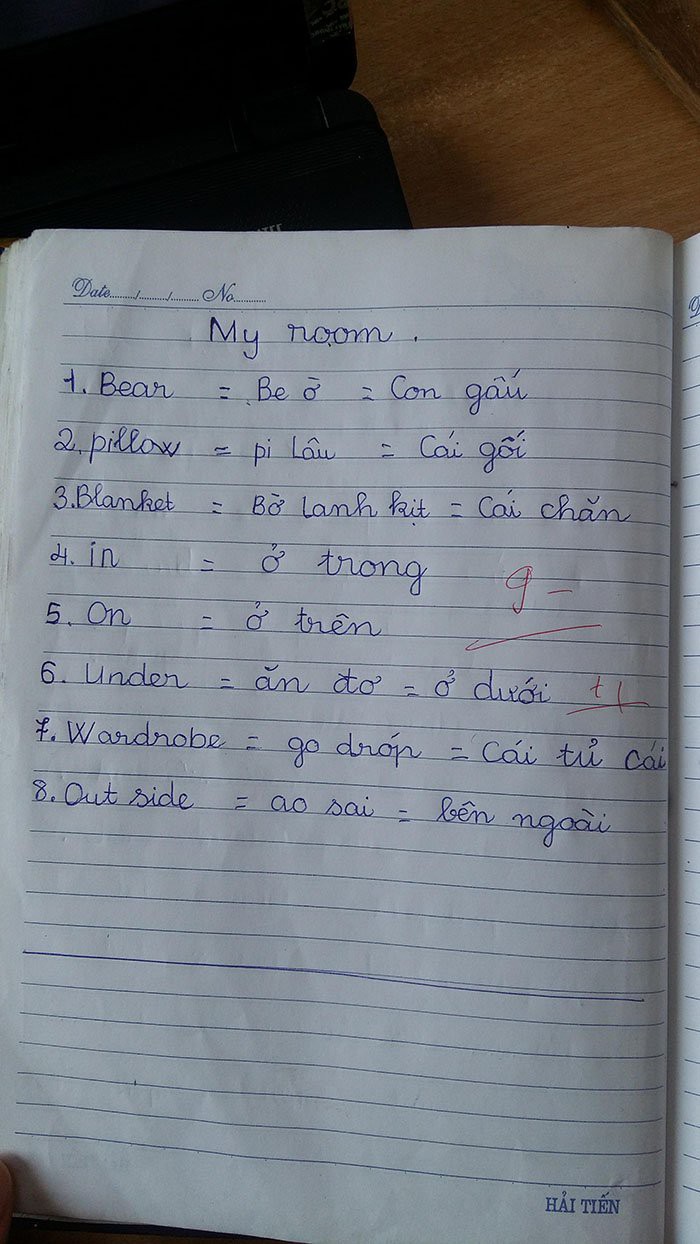 Date....../....../...... No..........
My room.
1. Bear = Be ờ = Con gấu
2. pillow = pi Lâu = Cái gối
3. Blanket = Bờ Lanh kịt = Cái chăn
4. in = ở trong
9 -
5. On = ở trên
6. Under = ăn đơ = ở dưới +1
7. Wardrobe = go dróp = Cái tủ cái
8. Out side = ao sai = bên ngoài
HẢI TIẾN